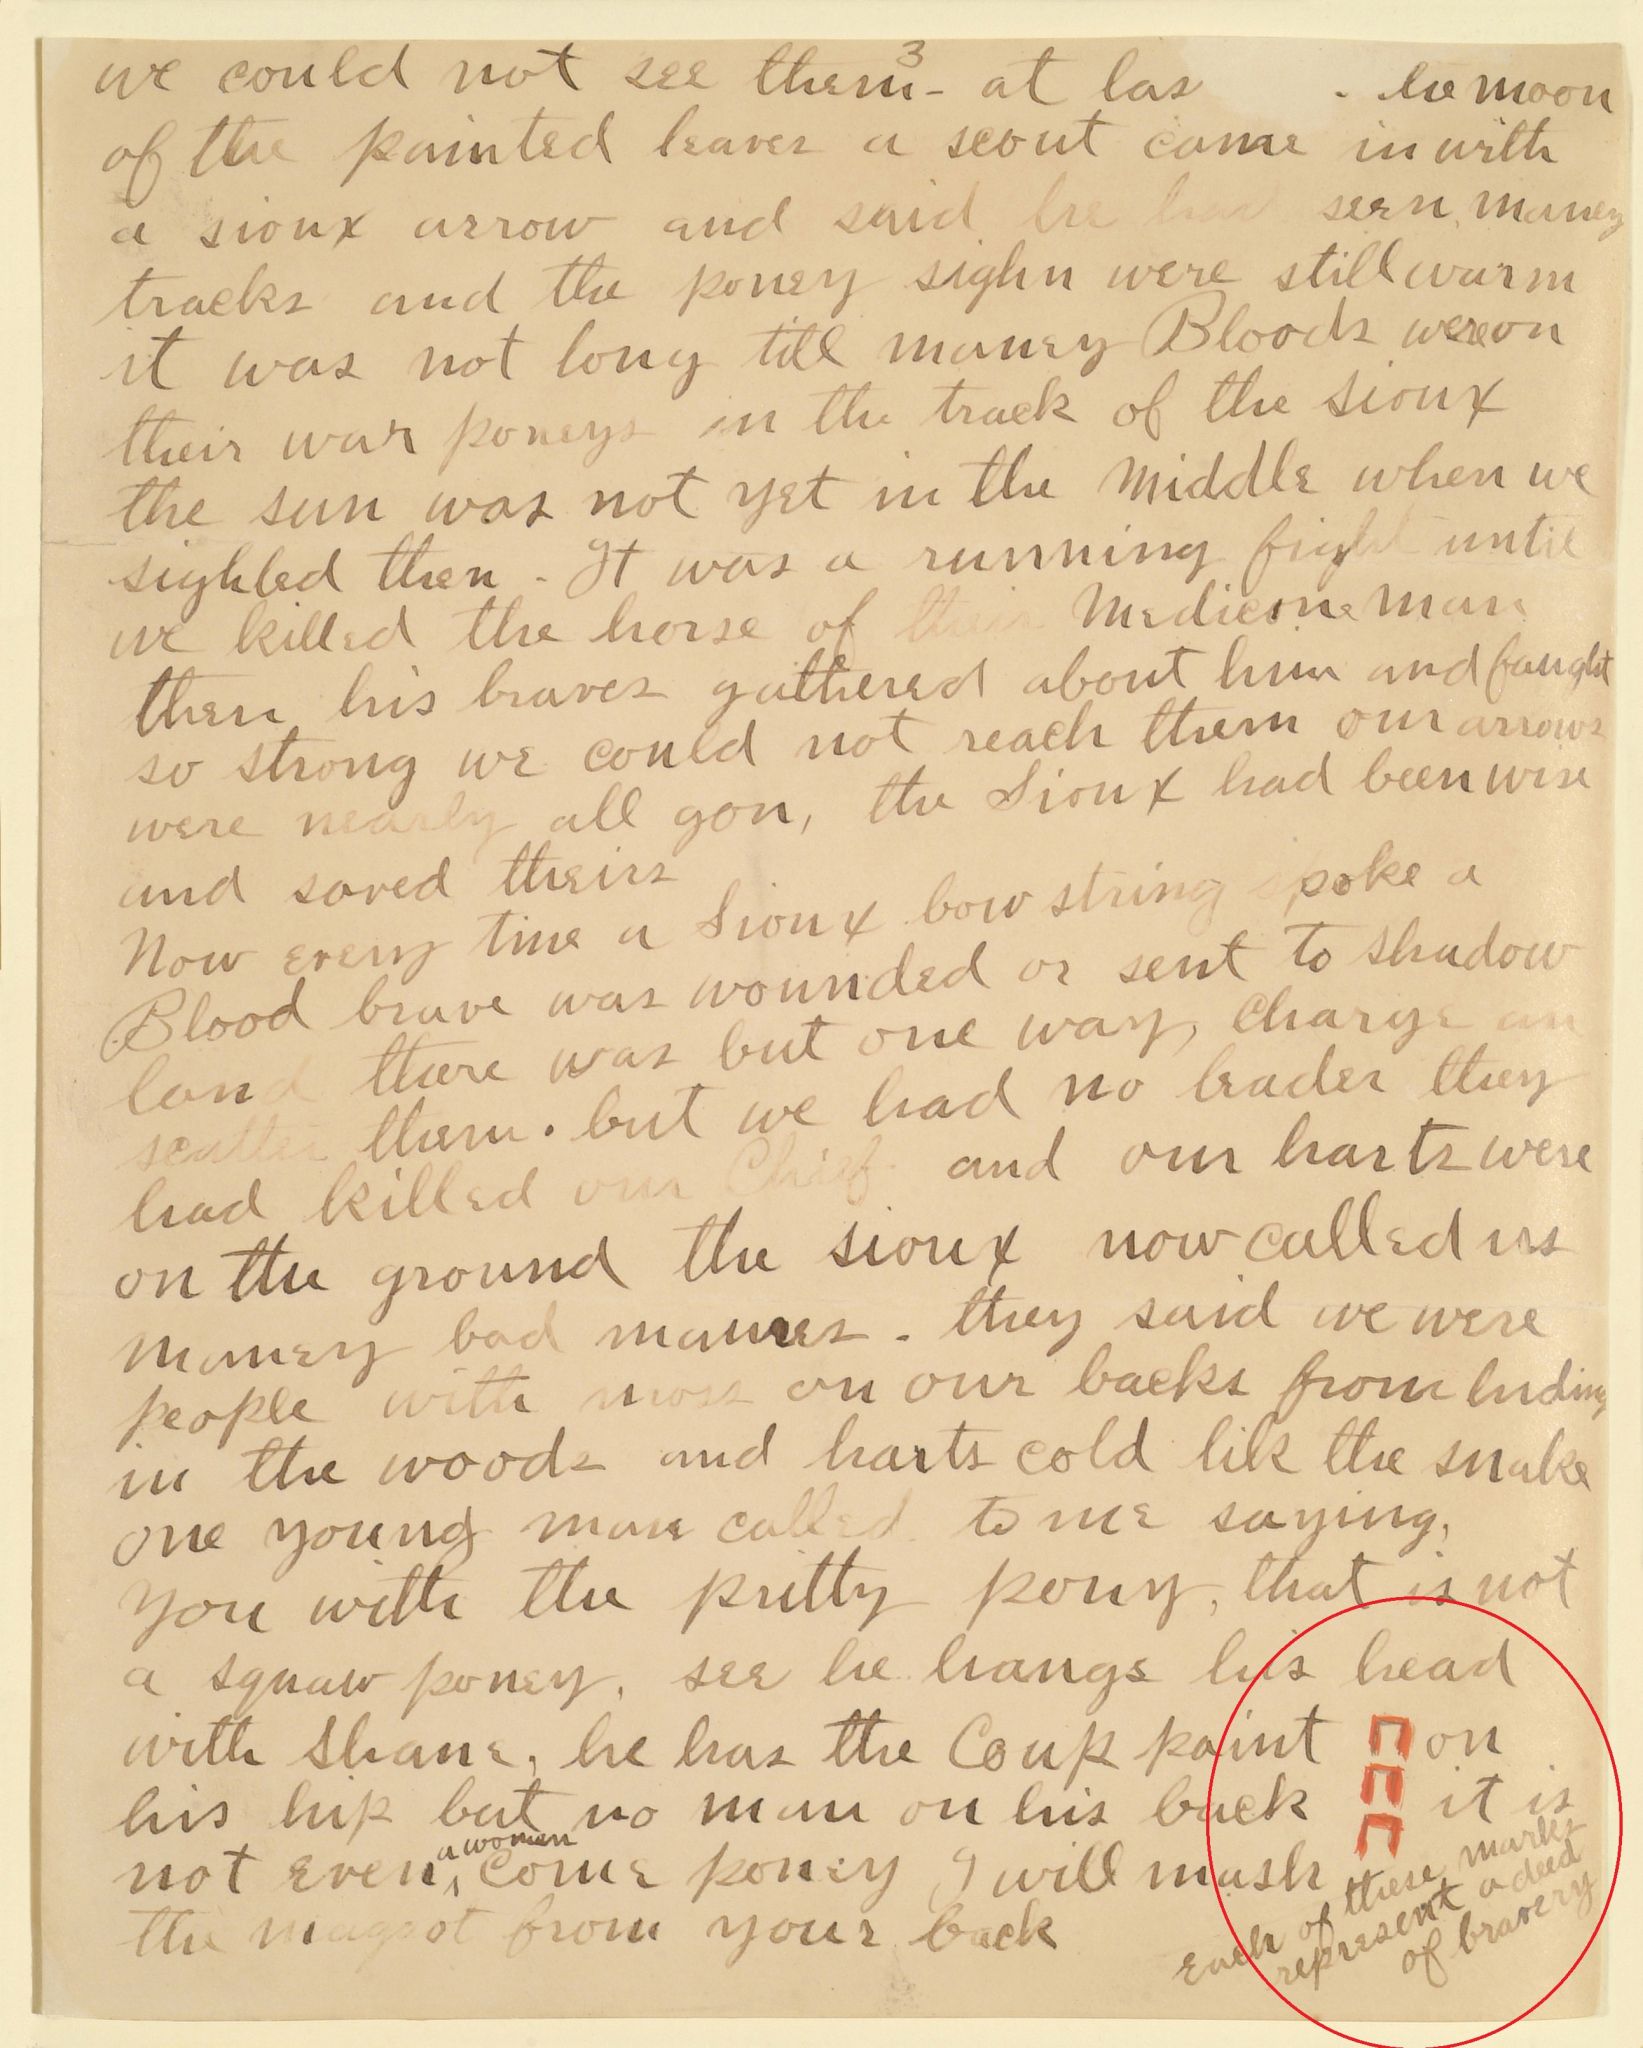 3
we could not see them - at las he moon
of the painted leaves a scout came in with
a sioux arrow and said he had seen maney
tracks and the poney sighn were still warm
it was not long till maney Bloods were on
their war poneys in the track of the Sioux
the sun was not yet in the Middle when we
sighted then - It was a running fight until
we killed the horse of their Medicone Man
then his braves gathered about him and faught
so strong we could not reach them our arrows
were nearly all gon, the Sioux had been wise
and saved theirs
Now every time a Sioux bow string spoke a
Blood brave was wounded or sent to shadow
land there was but one way, Charge an
scatter them. but we had no leader they
had killed our Chief and our harts were
on the ground the sioux now called us
maney bad names - they said we were
people with moss on our backs from hiding
in the woods and harts cold lik the snake
one young man called to me saying,
you with the pritty pony, that is not
a squaw poney, see he hangs his head
with Shame, he has the Coup paint on
his hip but no man on his back it is
a women
not even, Come poney I will mash
the maggot from your back
Each of these marks
represent a deed
of bravery